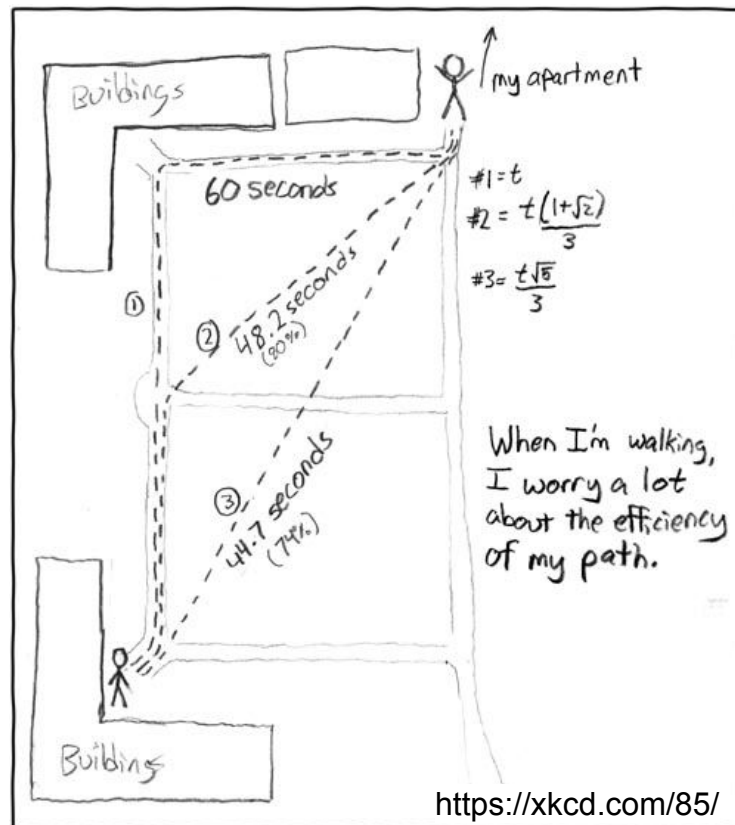 Buildings
my apartment
60 seconds
#1 = t
#2 = t(1+√2)/3
#3 = t√5/3
①
② 48.2 seconds
(80%)
When I'm walking,
I worry a lot
about the efficiency
of my path.
③ 44.7 seconds
(74%)
Buildings
https://xkcd.com/85/